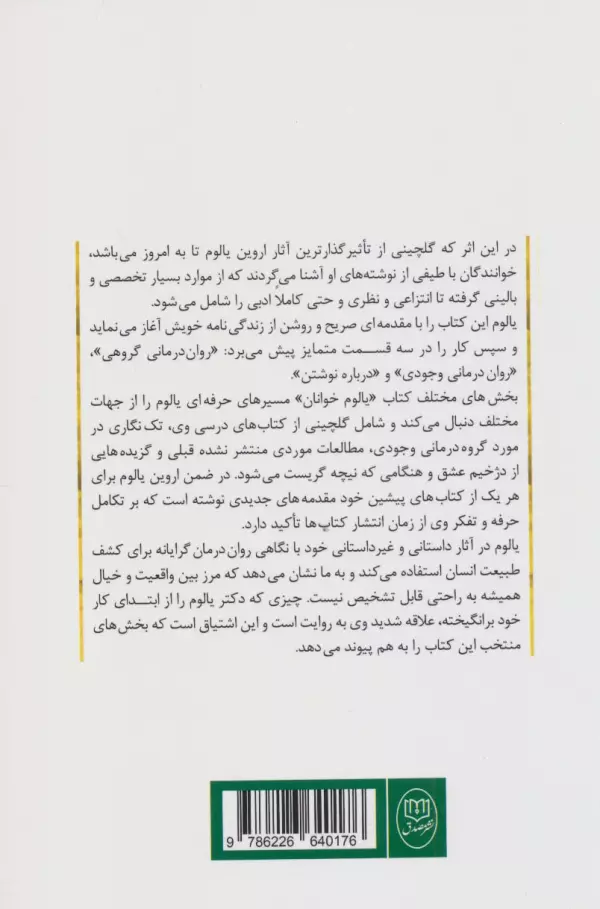 در این اثر که گلچینی از تأثیرگذارترین آثار اروین یالوم تا به امروز می‌باشد،
خوانندگان با طیفی از نوشته‌های او آشنا می‌گردند که از موارد بسیار تخصصی و
بالینی گرفته تا انتزاعی و نظری و حتی کاملاً ادبی را شامل می‌شود.
یالوم این کتاب را با مقدمه‌ای صریح و روشن از زندگی‌نامه خویش آغاز می‌نماید
و سپس کار را در سه قسمت متمایز پیش می‌برد: «روان‌درمانی گروهی»،
«روان درمانی وجودی» و «درباره نوشتن».
بخش‌های مختلف کتاب «یالوم خوانان» مسیرهای حرفه‌ای یالوم را از جهات
مختلف دنبال می‌کند و شامل گلچینی از کتاب‌های درسی وی، تک‌نگاری در
مورد گروه‌درمانی وجودی، مطالعات موردی منتشر نشده قبلی و گزیده‌هایی
از دژخیم عشق و هنگامی که نیچه گریست می‌شود. در ضمن اروین یالوم برای
هر یک از کتاب‌های پیشین خود مقدمه‌های جدیدی نوشته است که بر تکامل
حرفه و تفکر وی از زمان انتشار کتاب‌ها تأکید دارد.
یالوم در آثار داستانی و غیرداستانی خود با نگاهی روان‌درمان گرایانه برای کشف
طبیعت انسان استفاده می‌کند و به ما نشان می‌دهد که مرز بین واقعیت و خیال
همیشه به راحتی قابل تشخیص نیست. چیزی که دکتر یالوم را از ابتدای کار
خود برانگیخته، علاقه شدید وی به روایت است و این اشتیاق است که بخش‌های
منتخب این کتاب را به هم پیوند می‌دهد.
نشر صدق
9 786226 640176